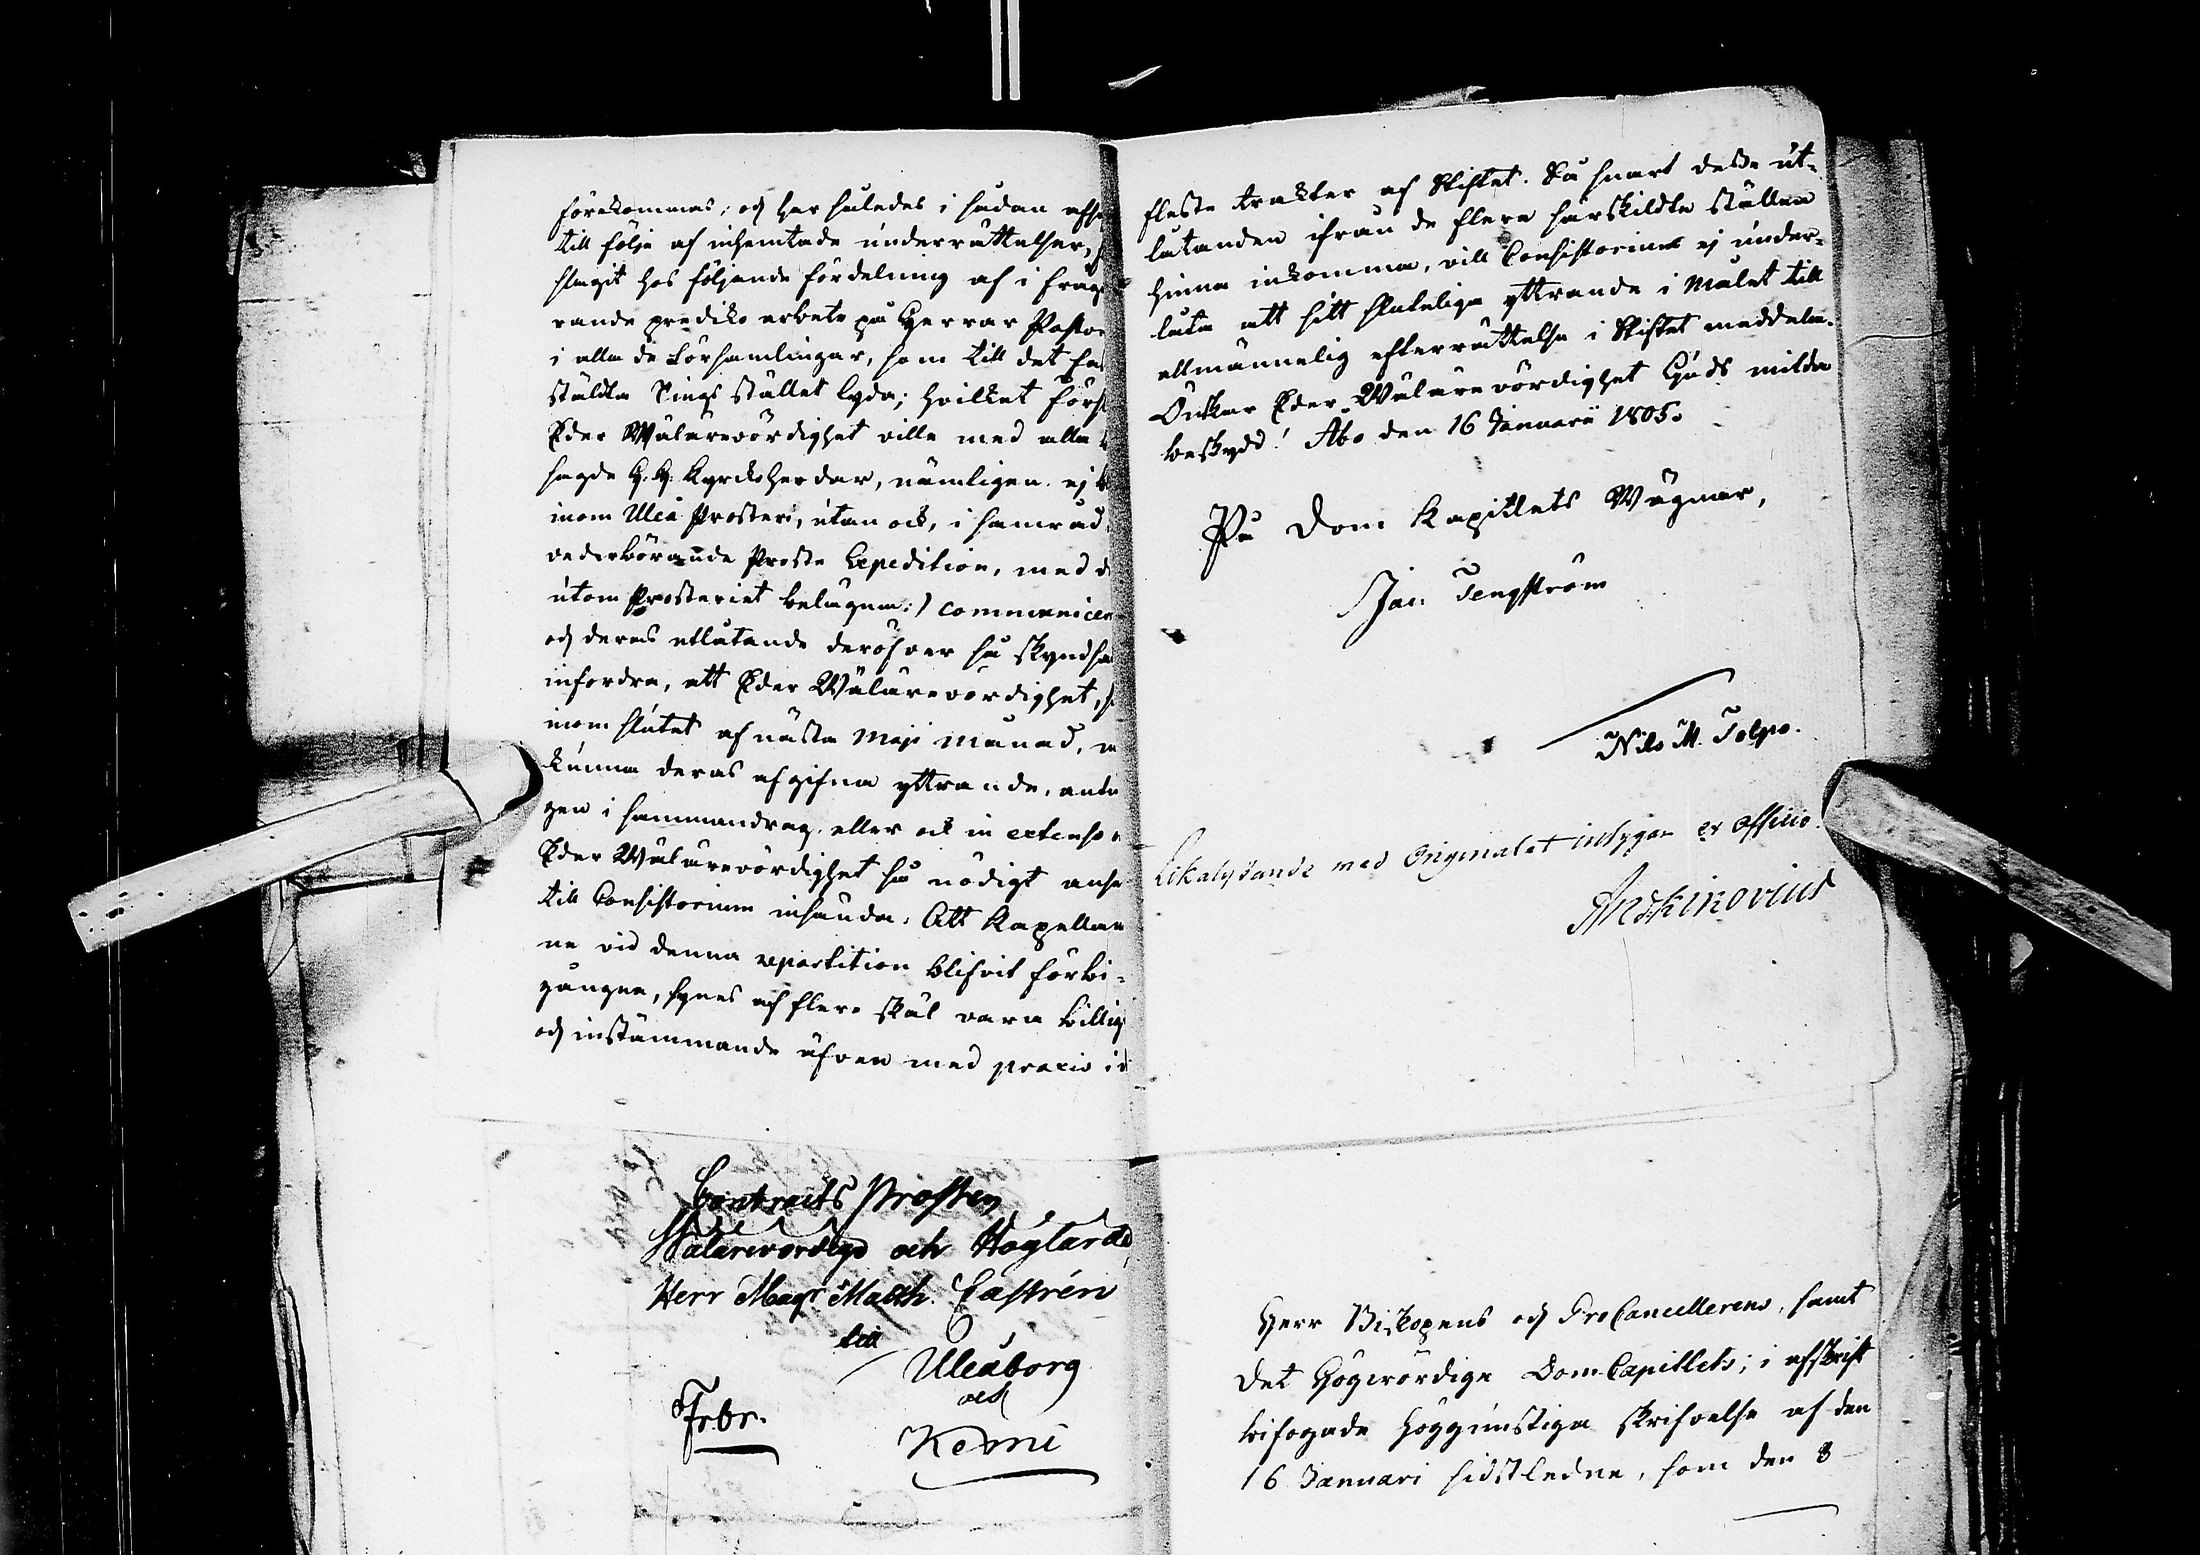 förekommas; och har således i sådan afse
till följe af inhemtade underrättelser,
slagit hos följande fördelning af i fråga
rande prediko arbete på Herrar Pasto
i alla de Församlingar, som till det fas
stäldta Tings stället lyda; hvilket försl
Eder Wälärevördighet ville med alla
sagde H. H. Kyrckoherdar, nämligen ej
inom Uleå Prosteri, utan ock, i samråd
vederbörande Prosts Expedition, med d
utom Prosteriet belägna:) communicera
och deras utlåtande deröfver så skyndsa
infordra, att Eder Wälärevördighet, s
inom slutet af nästa Maji Månad, m
kunna deras afgifna yttrande, antin
gen i sammandrag eller ock in extenso
Eder Wälärevördighet så nödigt anse
till Consistorium insända. Att Kapellan
ne vid denna repartition blifvit förbi-
gångne, synes af flere skäl vara billigt
och instämmande äfven med praxis i d
fleste trakter af Stiftet. Så snart desse ut-
låtanden ifrån de flera särskildte ställen
hinna inkomma, vill Consistorium ej under-
låta att sitt slutelige yttrande i Målet till
allmännelig efterrättelse i Stiftet meddela.
Önskar Eder Wälärevördighet Guds milda
beskydd! Åbo den 16 Januarii 1805.
På Dom Kapitlets Wägnar,
Jac. Tengström
Nils M. Tolpo.
Likalydande med Originalet intygar ex officio.
Contracts Prosten
Wälärevördige och Höglärde
Herr Mag:r Matth. Castrén
till
Uleåborg
och
Kemi
Frbr.
Herr Biskopens och ProCancellerens, samt
det Högvördige DomCapitlets, i afskrift
bifogade höggunstiga skrifvelse af den
16 Januari sidstledne, som den 8